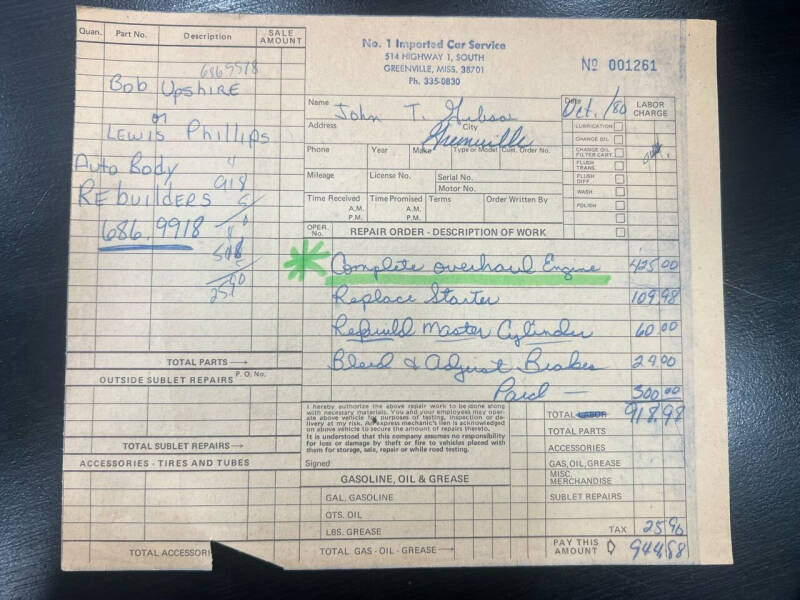 Quan.
Part No.
Description
SALE AMOUNT
6869918
Bob Upshire
or
Lewis Phillips
Auto Body
Rebuilders
686,9918
918
25.90
TOTAL PARTS →
OUTSIDE SUBLET REPAIRS P.O. No.
TOTAL SUBLET REPAIRS →
ACCESSORIES - TIRES AND TUBES
No. 1 Imported Car Service
514 HIGHWAY 1, SOUTH
GREENVILLE, MISS. 38701
Ph. 335-0830
No 001261
Name John T.
Date Oct. 1/80
LABOR CHARGE
Address
City Greenville
LUBRICATION
CHANGE OIL
CHANGE OIL FILTER CART.
FLUSH TRANS.
FLUSH DIFF.
WASH
POLISH
Phone
Year
Make
Type or Model
Cust. Order No.
Mileage
License No.
Serial No.
Motor No.
Time Received A.M. P.M.
Time Promised A.M. P.M.
Terms
Order Written By
OPER. No.
REPAIR ORDER - DESCRIPTION OF WORK
Complete overhaul Engine 425.00
Replace Starter 109.98
Rebuild Master Cylinder 60.00
Bleed & Adjust Brakes 24.00
Paid — 300.00
I hereby authorize the above repair work to be done along
with necessary materials. You and your employees may oper-
ate above vehicle for purposes of testing, inspection or de-
livery at my risk. An express mechanic's lien is acknowledged
on above vehicle to secure the amount of repairs thereto.
It is understood that this company assumes no responsibility
for loss or damage by theft or fire to vehicles placed with
them for storage, sale, repair or while road testing.
Signed
TOTAL LABOR 918.98
TOTAL PARTS
ACCESSORIES
GAS, OIL, GREASE
MISC. MERCHANDISE
SUBLET REPAIRS
GASOLINE, OIL & GREASE
GAL. GASOLINE
QTS. OIL
LBS. GREASE
TAX 25.90
TOTAL ACCESSORI
TOTAL GAS - OIL - GREASE →
PAY THIS AMOUNT 944.88